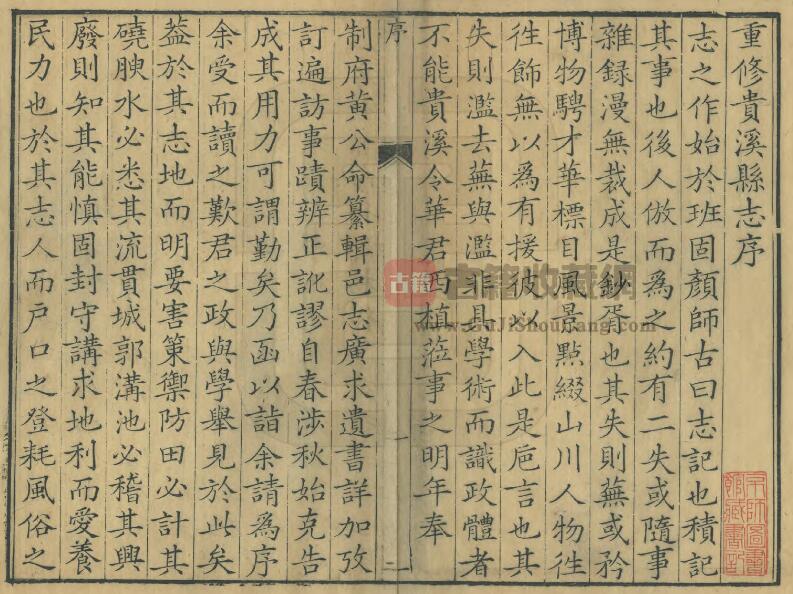 重修貴溪縣志序
志之作始於班固顏師古曰志記也積記
其事也後人倣而為之約有二失或隨事
雜録漫無裁成是鈔胥也其失則蕪或矜
博物騁才華標目風景點綴山川人物徃
徃飾無以為有援彼以入此是巵言也其
失則濫去蕪與濫非具學術而識政體者
不能貴溪令華君西植蒞事之明年奉
序
一
制府黃公命纂輯邑志廣求遺書詳加攷
訂遍訪事蹟辨正訛謬自春涉秋始克告
成其用力可謂勤矣乃函以詣余請為序
余受而讀之歎君之政與學舉見於此矣
葢於其志地而明要害策禦防田必計其
磽腴水必悉其流貫城郭溝池必稽其興
廢則知其能慎固封守講求地利而愛養
民力也於其志人而戶口之登耗風俗之
古籍
古籍收藏網
www.GuJiShouCang.com